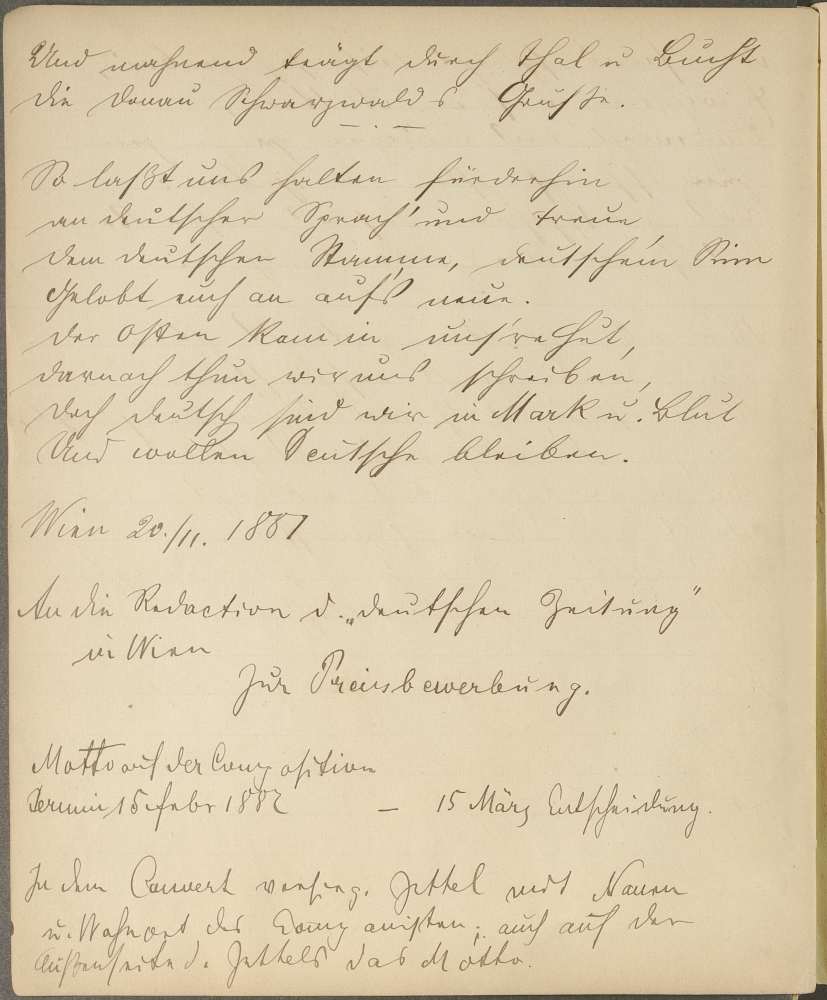 Und mahnend trägt durch Thal u Bucht
die Donau Schwarzwalds Grüße.
So laßt uns halten fürderhin
an deutscher Sprach' und Treue,
dem deutschen Stamme, deutschem Sinn
Gelobt euch an aufs neue.
der Osten kam in uns're Hut,
darnach thun wir uns schreiben,
doch deutsch sind wir in Mark u. Blut
Und wollen Deutsche bleiben.
Wien 20./11. 1881
An die Redaction d. „deutschen Zeitung"
in Wien
Zur Preisbewerbung.
Motto auf der Composition
Termin 15. Febr 1882 – 15 März Entscheidung.
In dem Couvert versieg. Zettel mit Namen
u. Wohnort des Componisten; auch auf der
Außenseite d. Zettels das Motto.